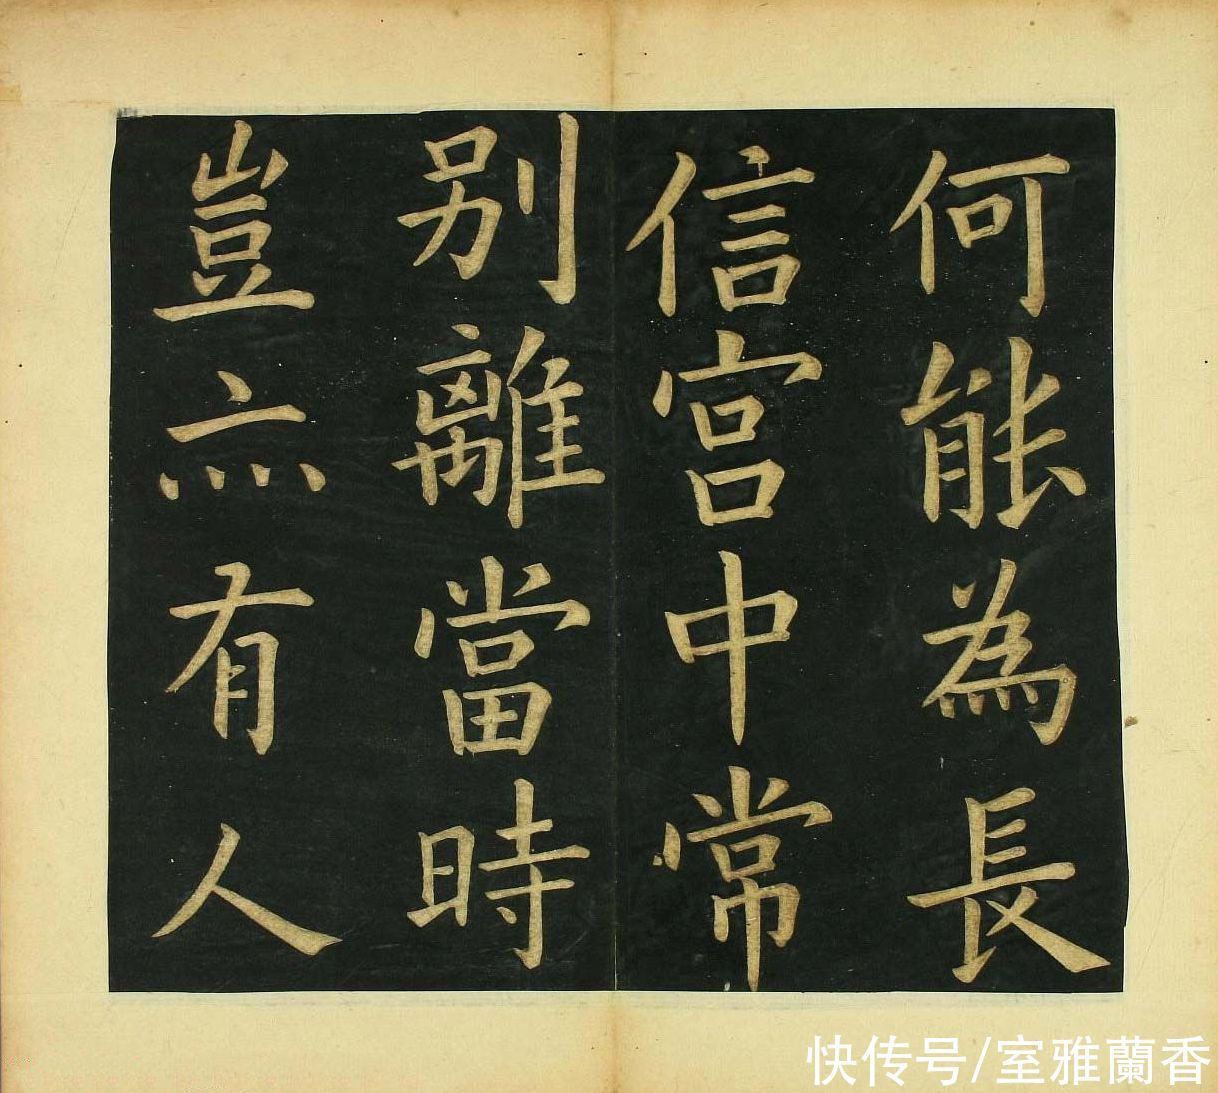 何能為長
信宮中常
别離當時
豈亦有人
快传号/室雅蘭香